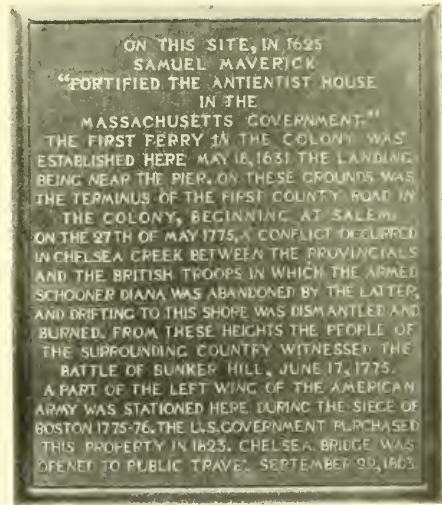 ON THIS SITE, IN 1625
SAMUEL MAVERICK
"FORTIFIED THE ANTIENTIST HOUSE
IN THE
MASSACHUSETTS GOVERNMENT."
THE FIRST FERRY IN THE COLONY WAS
ESTABLISHED HERE MAY 18, 1631 THE LANDING
BEING NEAR THE PIER. ON THESE GROUNDS WAS
THE TERMINUS OF THE FIRST COUNTY ROAD IN
THE COLONY, BEGINNING AT SALEM.
ON THE 27TH OF MAY 1775, A CONFLICT OCCURRED
IN CHELSEA CREEK BETWEEN THE PROVINCIALS
AND THE BRITISH TROOPS IN WHICH THE ARMED
SCHOONER DIANA WAS ABANDONED BY THE LATTER,
AND DRIFTING TO THIS SHORE WAS DISMANTLED AND
BURNED. FROM THESE HEIGHTS THE PEOPLE OF
THE SURROUNDING COUNTRY WITNESSED THE
BATTLE OF BUNKER HILL, JUNE 17, 1775.
A PART OF THE LEFT WING OF THE AMERICAN
ARMY WAS STATIONED HERE DURING THE SIEGE OF
BOSTON 1775-76. THE U.S. GOVERNMENT PURCHASED
THIS PROPERTY IN 1823. CHELSEA BRIDGE WAS
OPENED TO PUBLIC TRAVEL SEPTEMBER 22, 1803